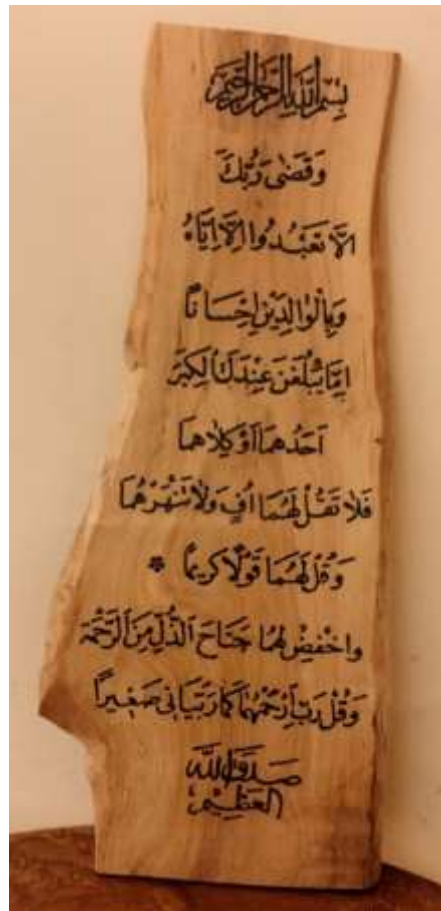 بِسْمِ اللَّهِ الرَّحْمَنِ الرَّحِيمِ
وَقَضٰى رَبُّكَ
اَلَّا تَعْبُدُوا اِلَّا اِيَّاهُ
وَبِالْوَالِدَيْنِ اِحْسَانًا
اِمَّا يَبْلُغَنَّ عِنْدَكَ الْكِبَرَ
اَحَدُهُمَا اَوْ كِلَاهُمَا
فَلَا تَقُلْ لَهُمَا اُفٍّ وَلَا تَنْهَرْهُمَا
وَقُلْ لَهُمَا قَوْلًا كَرِيمًا *
وَاخْفِضْ لَهُمَا جَنَاحَ الذُّلِّ مِنَ الرَّحْمَةِ
وَقُلْ رَبِّ ارْحَمْهُمَا كَمَا رَبَّيَانِي صَغِيرًا
صَدَقَ اللَّهُ
الْعَظِيمُ